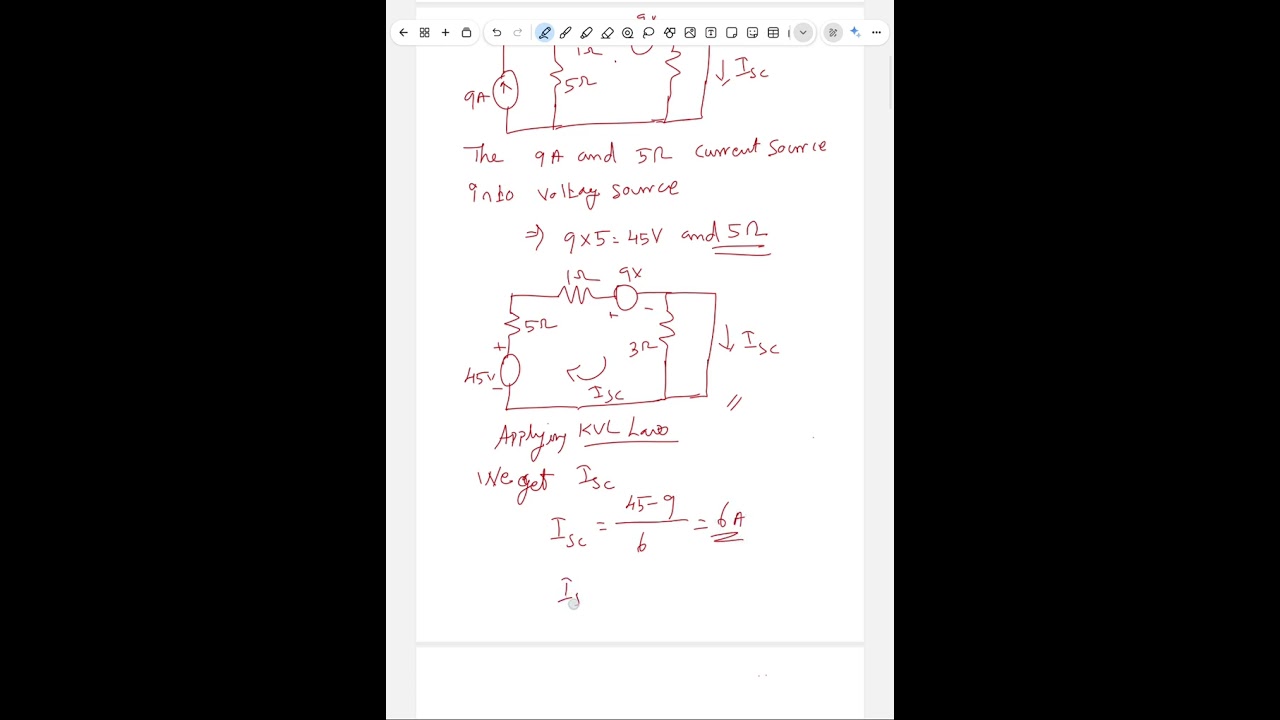 9v
1Ω
5Ω
9A
↓ Isc
The 9A and 5Ω current source
into voltag source
⇒ 9×5=45V and 5Ω
1Ω
9v
+ -
5Ω
+
3Ω
↓ Isc
45v
-
Isc
//
Applying KVL Law
We get Isc
Isc = 45-9 / 6 = 6A
Is